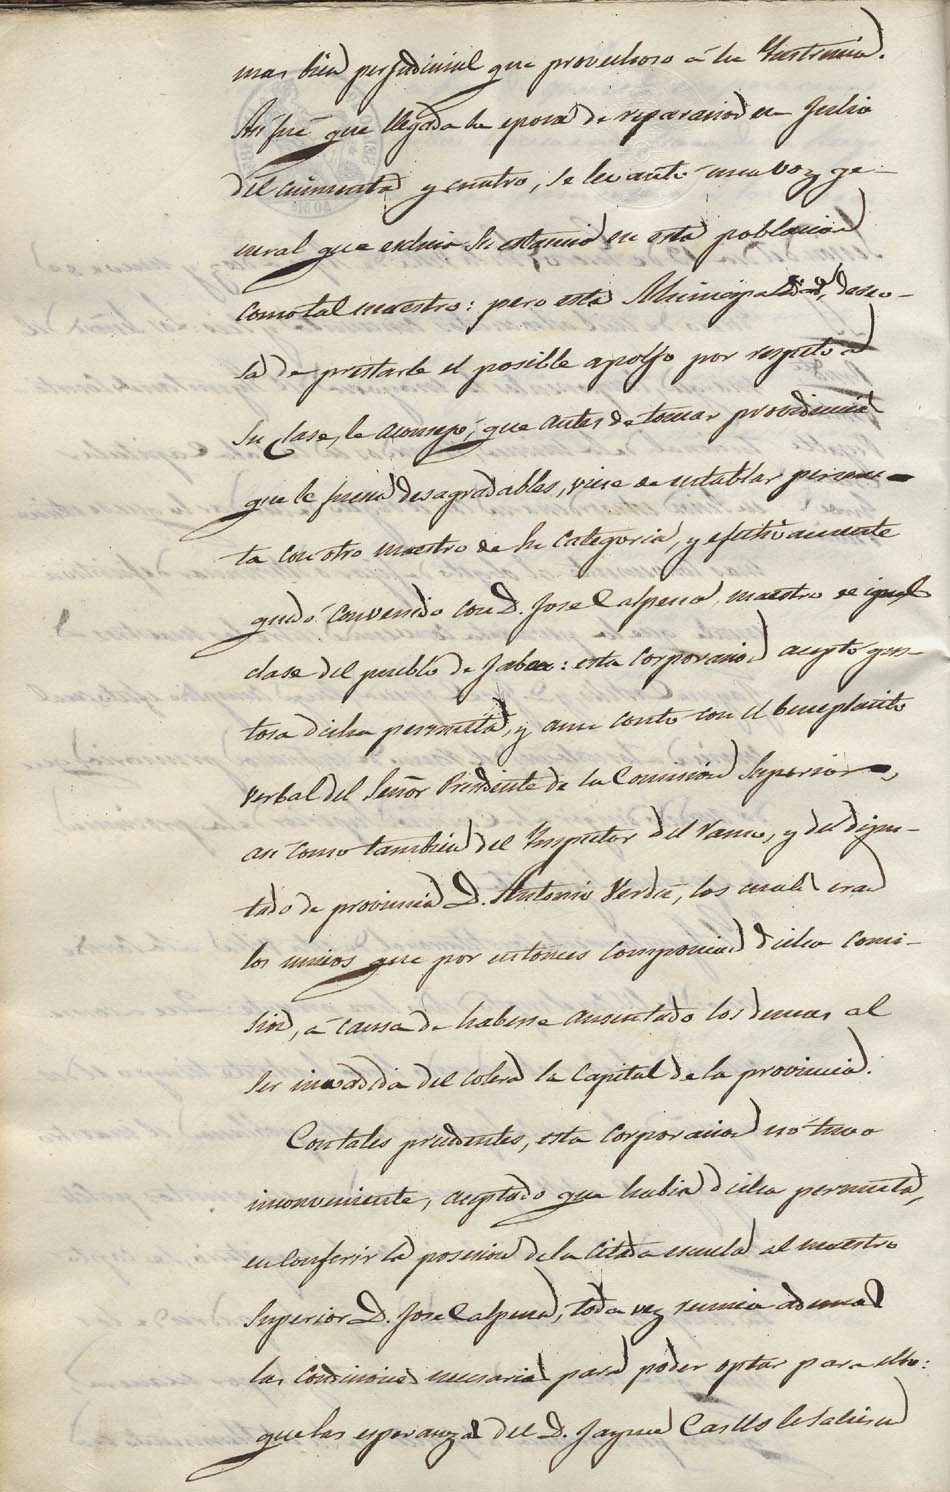 mas bien perjudicial que provechoso á la Instrucción.
Así fué que llegada la epoca de reparacion en Julio
del cincuenta y cuatro, se levantó una voz ge-
neral que excluia su estancia en esta poblacion
como tal maestro: pero esta Municipalidad, deseo-
sa de prestarle el posible apoyo por respeto á
su clase, le aconsejó, que antes de tomar providencia
que le fuera desagradables, viese de entablar permu-
ta con otro maestro de su categoria, y efectivamente
quedó convenido con D. Jose Calpena, maestro de igual
clase del pueblo de Jabea: esta corporacion aceptó gus-
tosa dicha permuta, y aun contó con el beneplacito
verbal del Señor Presidente de la Comision Superior,
asi como tambien del Inspector del ramo, y del dipu-
tado de provincia D. Antonio Verdú, los cuales eran
los unicos que por entonces componian dicha comi-
sion, á causa de haberse ausentado los demas al
ser invadida del colera la Capital de la provincia.
Con tales precedentes, esta corporacion no tuvo
inconveniente, aceptado que habia dicha permuta,
en conferir la posesion de la citada escuela al maestro
Superior D. Jose Calpena, toda vez reunia ademas
las condiciones necesarias para poder optar para ello:
que las esperanzas del D. Jayme Caslls le salieran